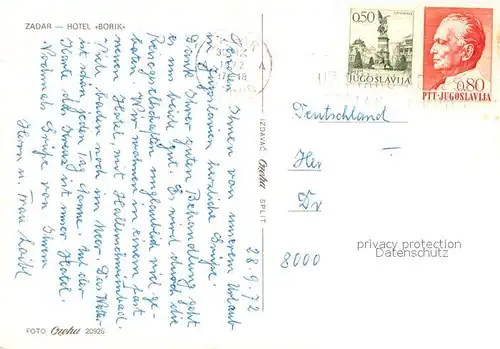 ZADAR — HOTEL «BORIK»
Ihnen von unserem Urlaub
in Jugoslawien herzliche Grüße.
Dank Ihrer guten Behandlung geht
es uns beide gut. Es wird durch die
Reisegesellschaften unglaublich viel ge-
boten. Wir wohnen in einem fast
neuen Hotel, mit Hallenschwimmbad.
Wir baden noch im Meer. Das Wetter
ist schön jeden Tag Sonne. Auf der
Karte das Kreuz ist unser Hotel.
Nochmals Grüße von Ihrem
Herrn u. Frau
28.9.72
FOTO Čačka 20926
IZDAVAČ SPLIT
0,50
JUGOSLAVIJA
0,80
PTT-JUGOSLAVIJA
Deutschland
Herr
Dr
8000
privacy protection
Datenschutz